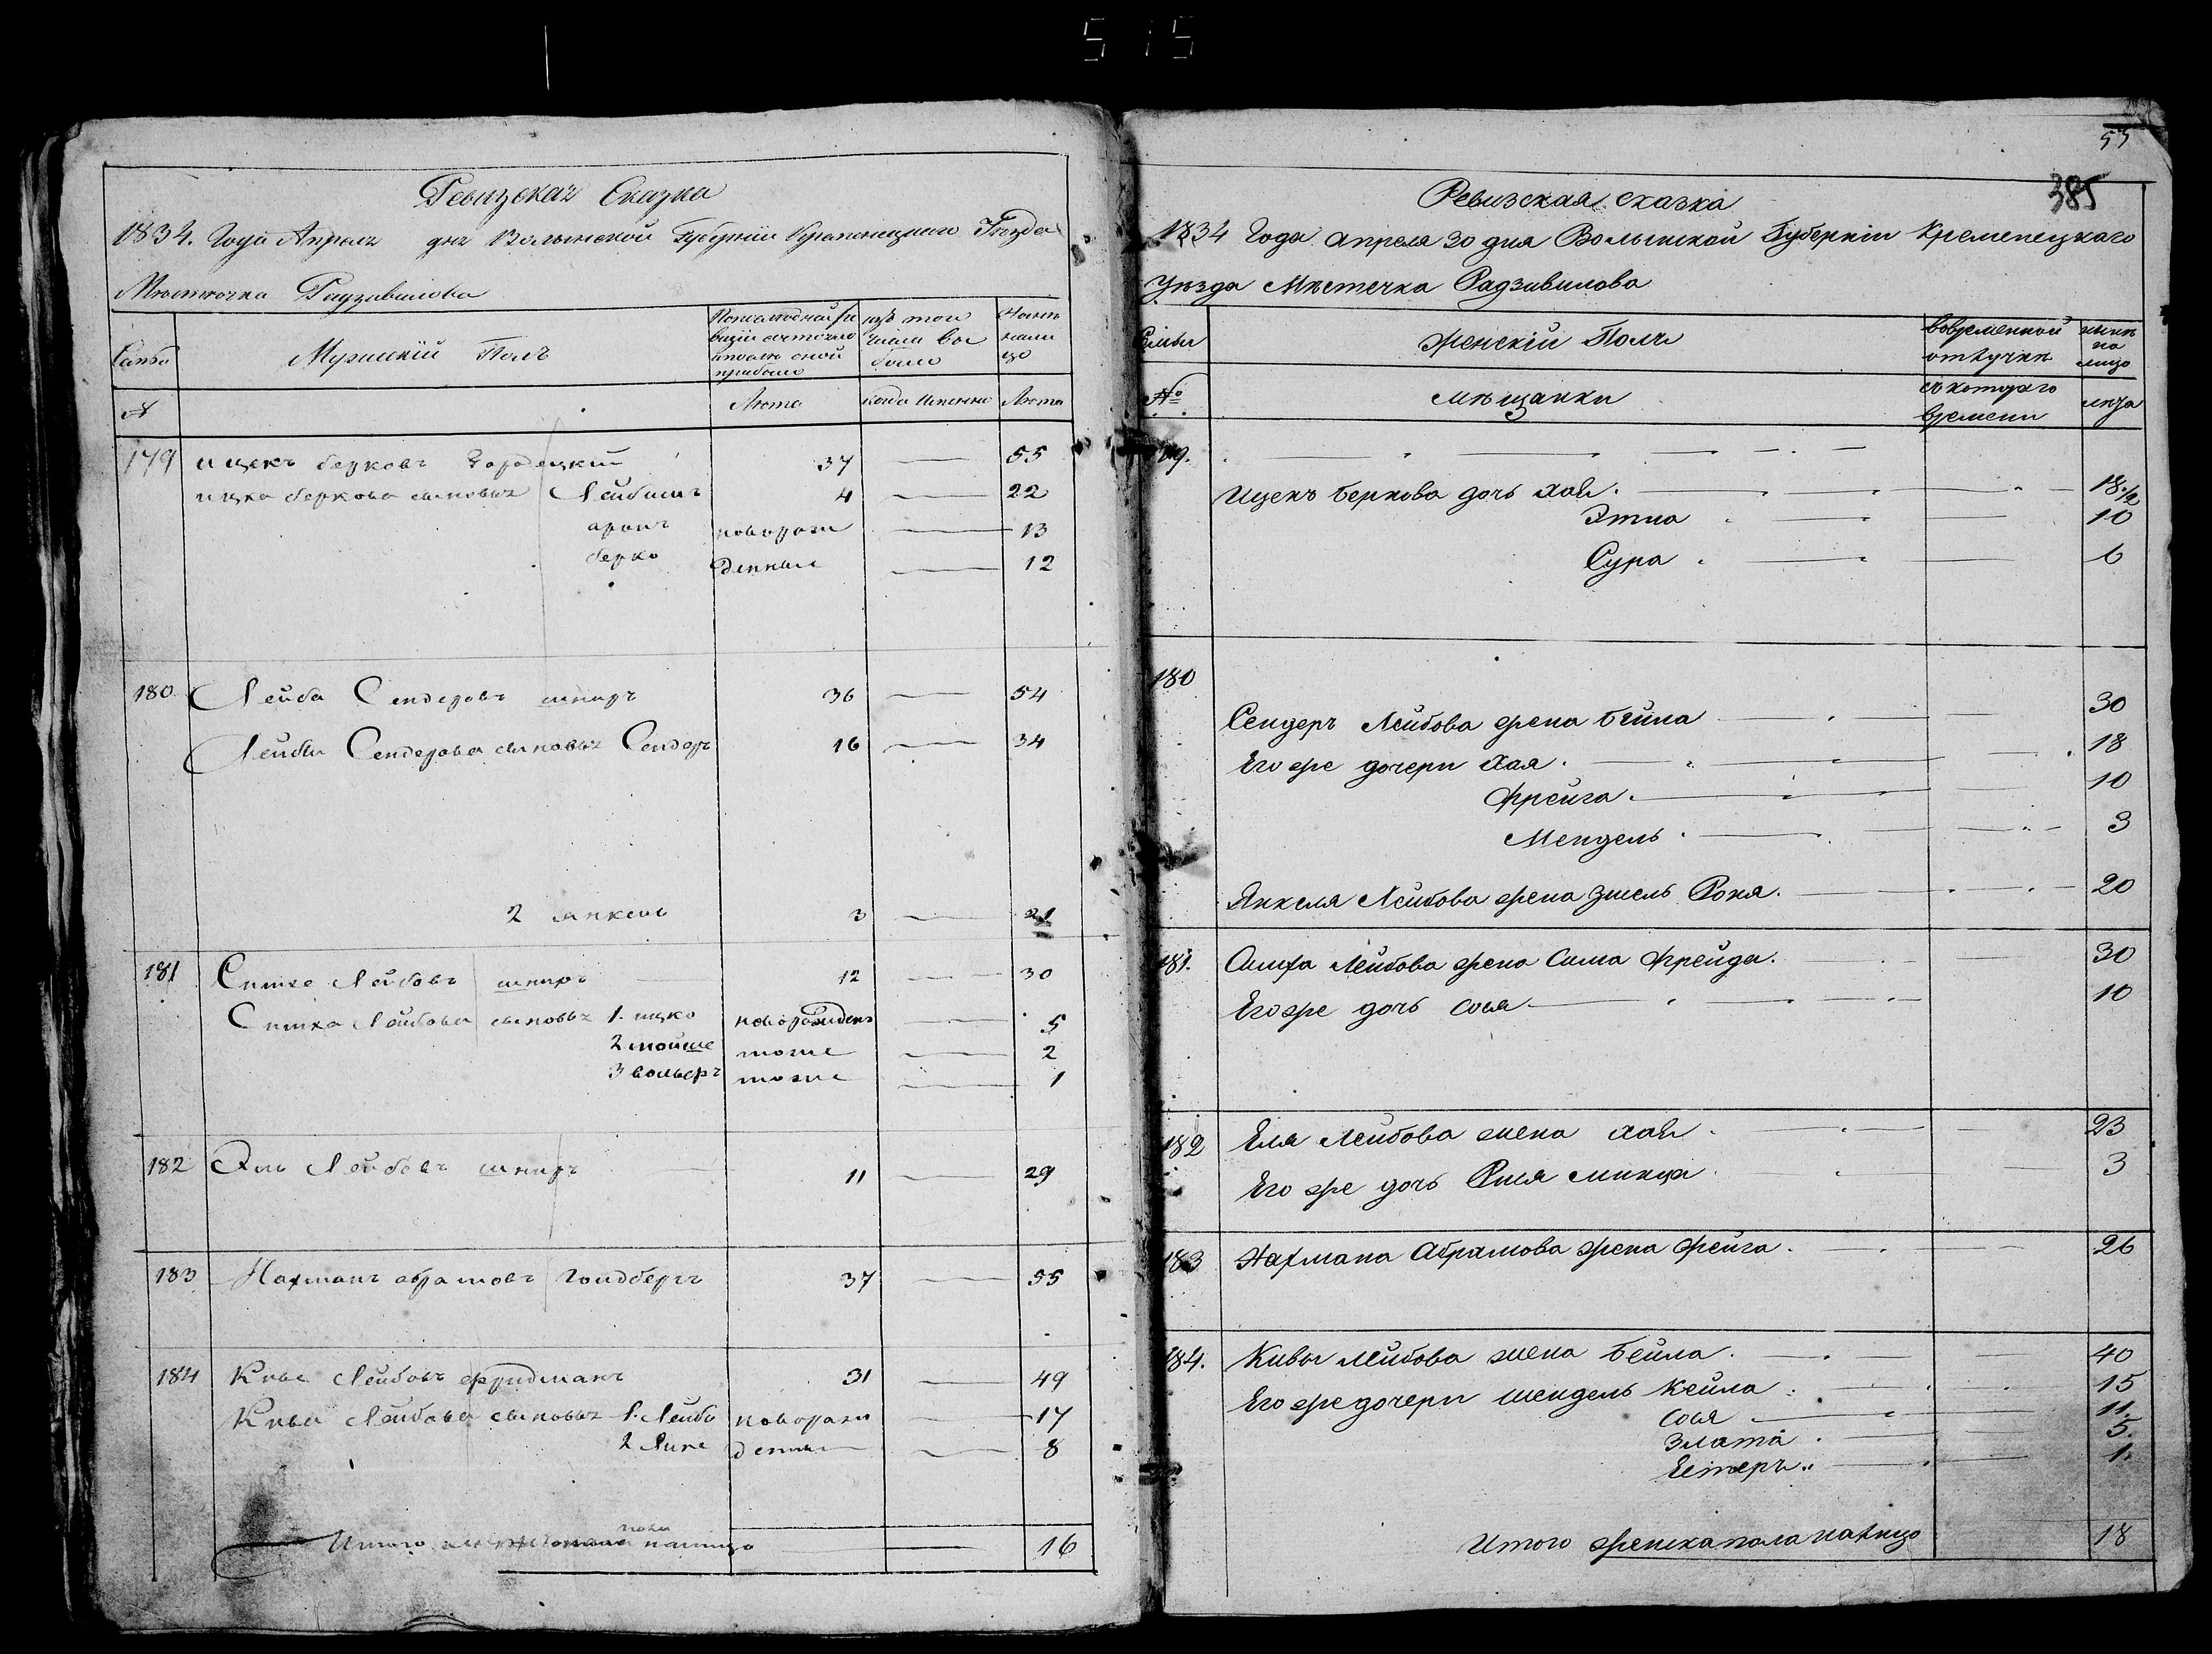 515
Ревизская Сказка
1834. Года Апреля дня Волынской Губернии Кременецкого Уезда
Местечка Радзивилова
Мужеский Полъ
Лета когда именно Лета
179 ицекъ берковъ Городецкий 37 55
ицка беркова сыновья Лейбишъ 4 22
аронъ новорож 13
берко денные 12
180 Лейба Сендеровъ шпиръ 36 54
Лейбы Сендерова сыновья Сендеръ 16 34
2 янкель 3 21
181 Симхе Лейбовъ шпиръ 12 30
Симха Лейбова сыновья 1. ицко новорожденъ 5
2 мойше тоже 2
3 вольфъ тоже 1
182 Эль Лейбовъ шпиръ 11 29
183 Нахманъ абрамовъ гольдбергъ 37 55
184 Киве Лейбовъ фридманъ 31 49
Кивы Лейбова сыновья 1. Лейба новорож 17
2 денны 8
Итого налицо 16
53
385
Ревизская сказка
1834 Года апреля 30 дня Волынской Губерніи Кременецкаго
Уѣзда Мѣстечка Радзивилова
Семьи Женскій Полъ вовременной отлучки нынѣ на лицо
№ мѣщанки съ котораго времени лѣта
179.
Ицекъ Беркова дочь хая 18 1/2
Этиа 10
Сура 6
180
Сендеръ Лейбова жена Бейла 30
Его же дочери Хая 18
Фрейга 10
Мендель 3
Янкеля Лейбова жена Роня 20
181. Симха Лейбова жена Сима Фрейда 30
Его же дочь Сося 10
182 Еля Лейбова жена хая 23
Его же дочь минца 3
183 Нахмана Абрамова жена Фейга 26
184. Кивы Лейбова жена Бейла 40
Его же дочери шендель Кейла 15
Сося 11.
Злата 5.
Естеръ 1.
Итого женска пола налицо 18